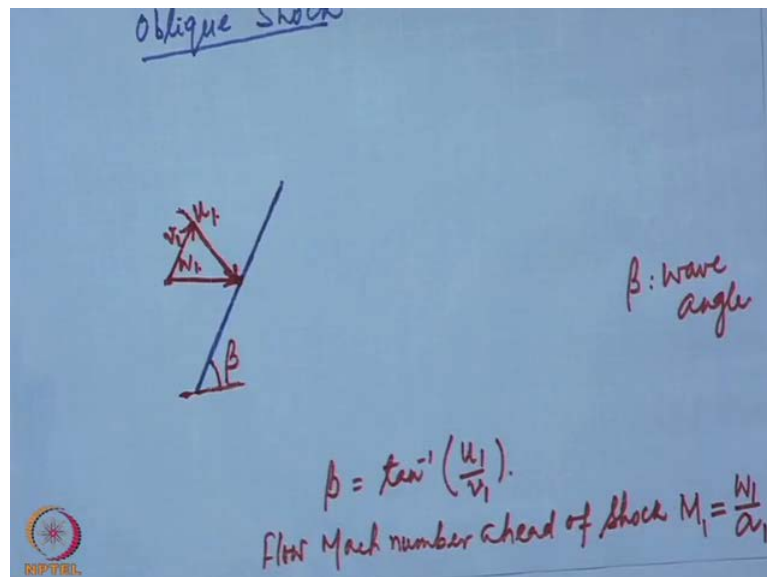 Oblique Shock
u₁
v₁
w₁
β
β : wave
angle
β = tan⁻¹ (u₁/v₁).
Flow Mach number ahead of Shock M₁ = w₁/a₁
NPTEL